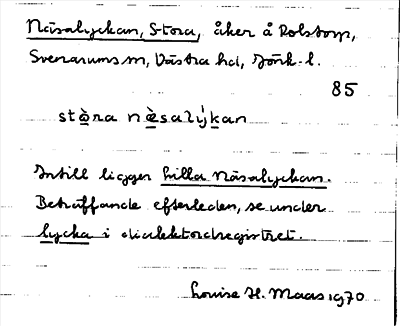 Näsalyckan, Stora, åker å Rolstorp,
Svenarums sn, Västra hd, Jönk. l.
85
stὰra nὲsalýkan
Intill ligger Lilla Näsalyckan.
Beträffande efterleden, se under
lycka i dialektordregistret.
Louise H. Maas 1970